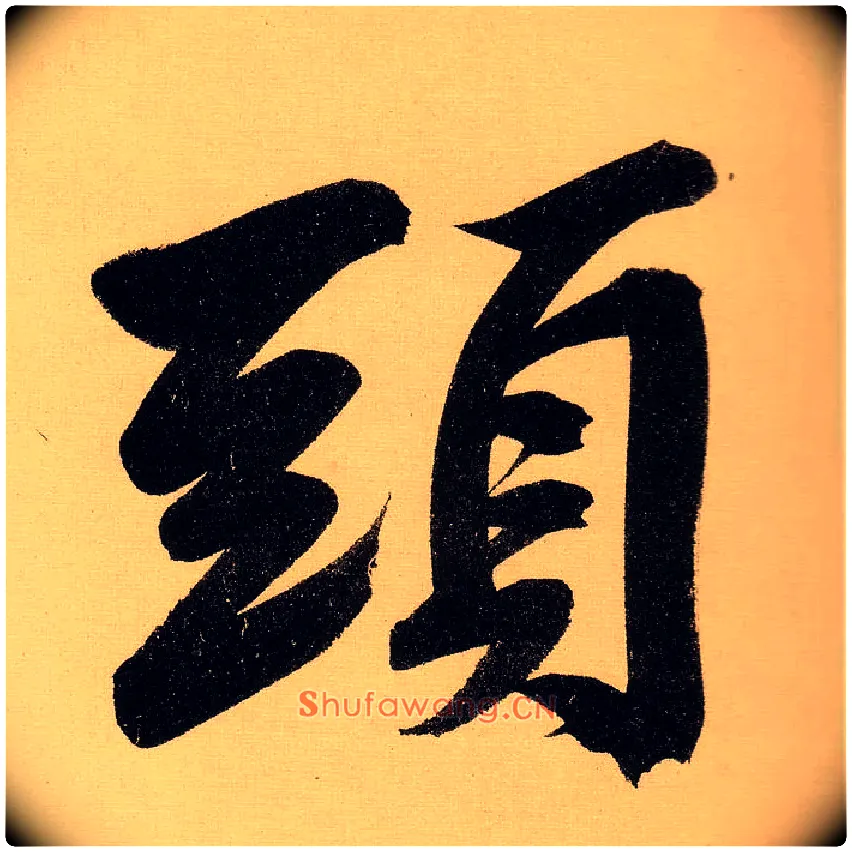 頭
Shufawang.CN